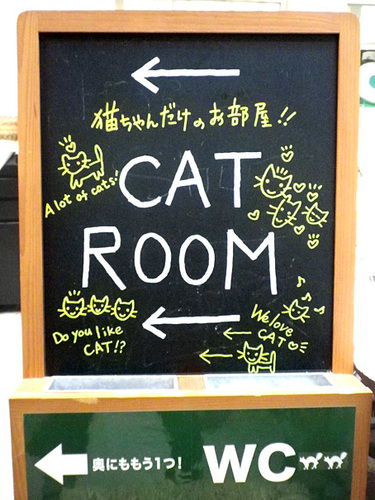 猫ちゃんだけのお部屋!!
A lot of cats!
CAT
ROOM
Do you like
CAT!?
We love
CAT
奥にももう1つ!
WC